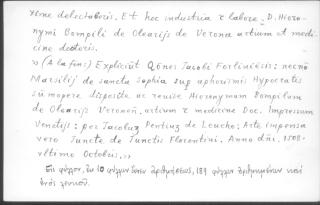 rime delectaboris. Et hoc industria z labore. D. Hiero-
nymi Bompili de Olearijs de Verona artium et medi
cine doctoris.
» (A la fine:) Explicîut Qōnes Jacobi Forliuiẽsis: necnō
Marsilij de sancta sophia sup aphorismis Hypocratis
sūmopere disposite ac reuise Hieronymum Bompilum
de Olearijs Veronēn. artium z medicine Doc. Impressum
Venetijs: per Jacobuz Pentiuz de Leucho; Arte impensa
vero Juncte de Junctis Florentini. Anno dñi. 1508.
vltimo Octobris.»
189 φύλλον